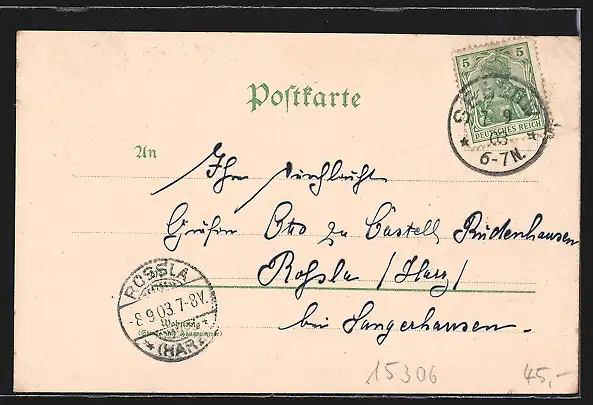 5 5
DEUTSCHES REICH
7 9
03
6-7N.
Postkarte
An
Ihre Durchlaucht
Otto zu Castell Rüdenhausen
Roßla /Harz/
bei Sangerhausen
ROSSLA
-8.9.03.7-8V.
* (HARZ)
Wohnung
15306
45,-